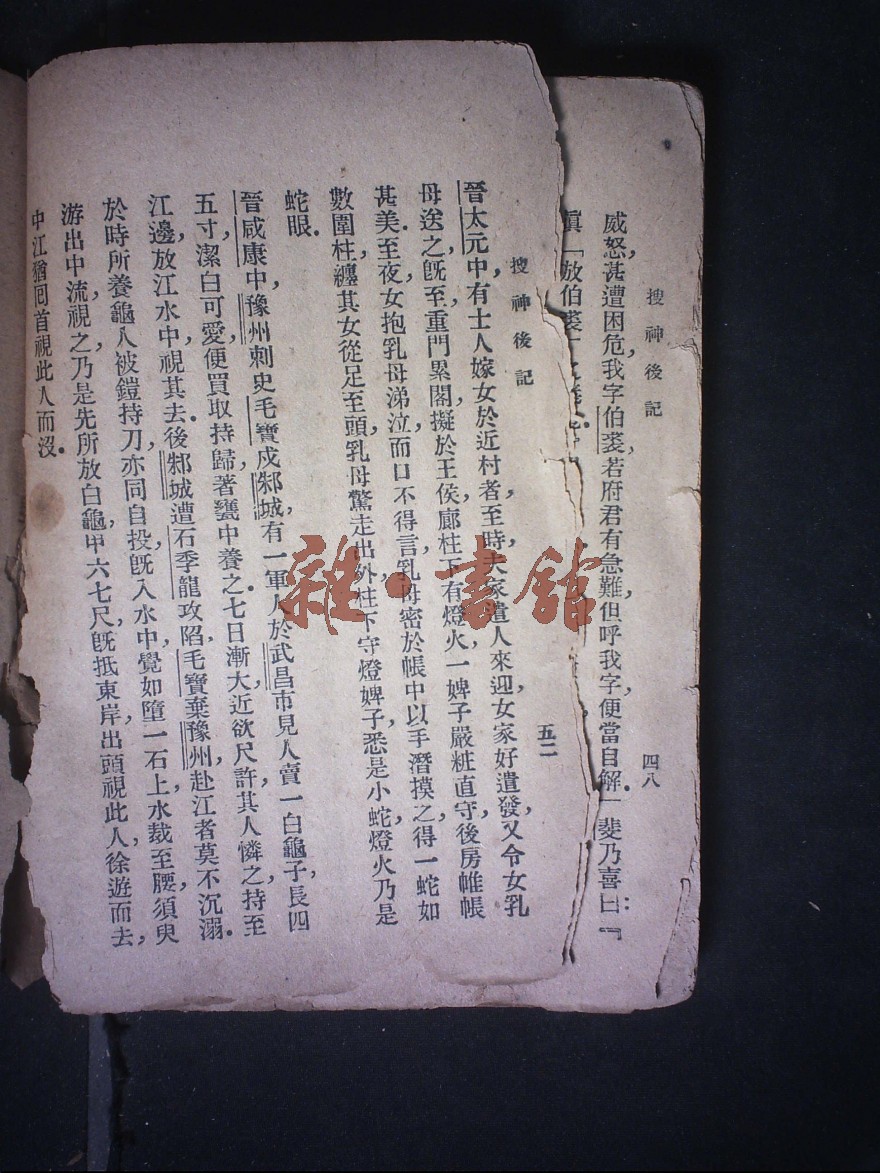 搜神後記
四八
威怒甚遭困危,我字伯裘,若府君有急難,但呼我字,便當自解。」斐乃喜曰:『
眞「放伯裘
搜神後記
五二
晉太元中,有士人嫁女於近村者,至時,夫家遣人來迎,女家好遣發,又令女乳
母送之,旣至,重門累閣,擬於王侯,廊柱下有燈火,一婢子嚴粧直守,後房帷帳
甚美。至夜,女抱乳母涕泣,而口不得言,乳母密於帳中以手潛摸之,得一蛇如
數圍柱,纏其女,從足至頭,乳母驚走出外,柱下守燈婢子,悉是小蛇,燈火乃是
蛇眼。
晉咸康中,豫州刺史毛寶戍邾城,有一軍人於武昌市見人賣一白龜子,長四
五寸,潔白可愛,便買取持歸,著甕中養之。七日漸大,近欲尺許,其人憐之,持至
江邊,放江水中,視其去。後邾城遭石季龍攻陷,毛寶棄豫州,赴江者莫不沉溺。
於時所養龜人,被鎧持刀,亦同自投,旣入水中,覺如墮一石上,水裁至腰,須臾
游出,中流視之,乃是先所放白龜,甲六七尺,旣抵東岸,出頭視此人,徐遊而去,
中江猶回首視此人而沒。
雜·書館